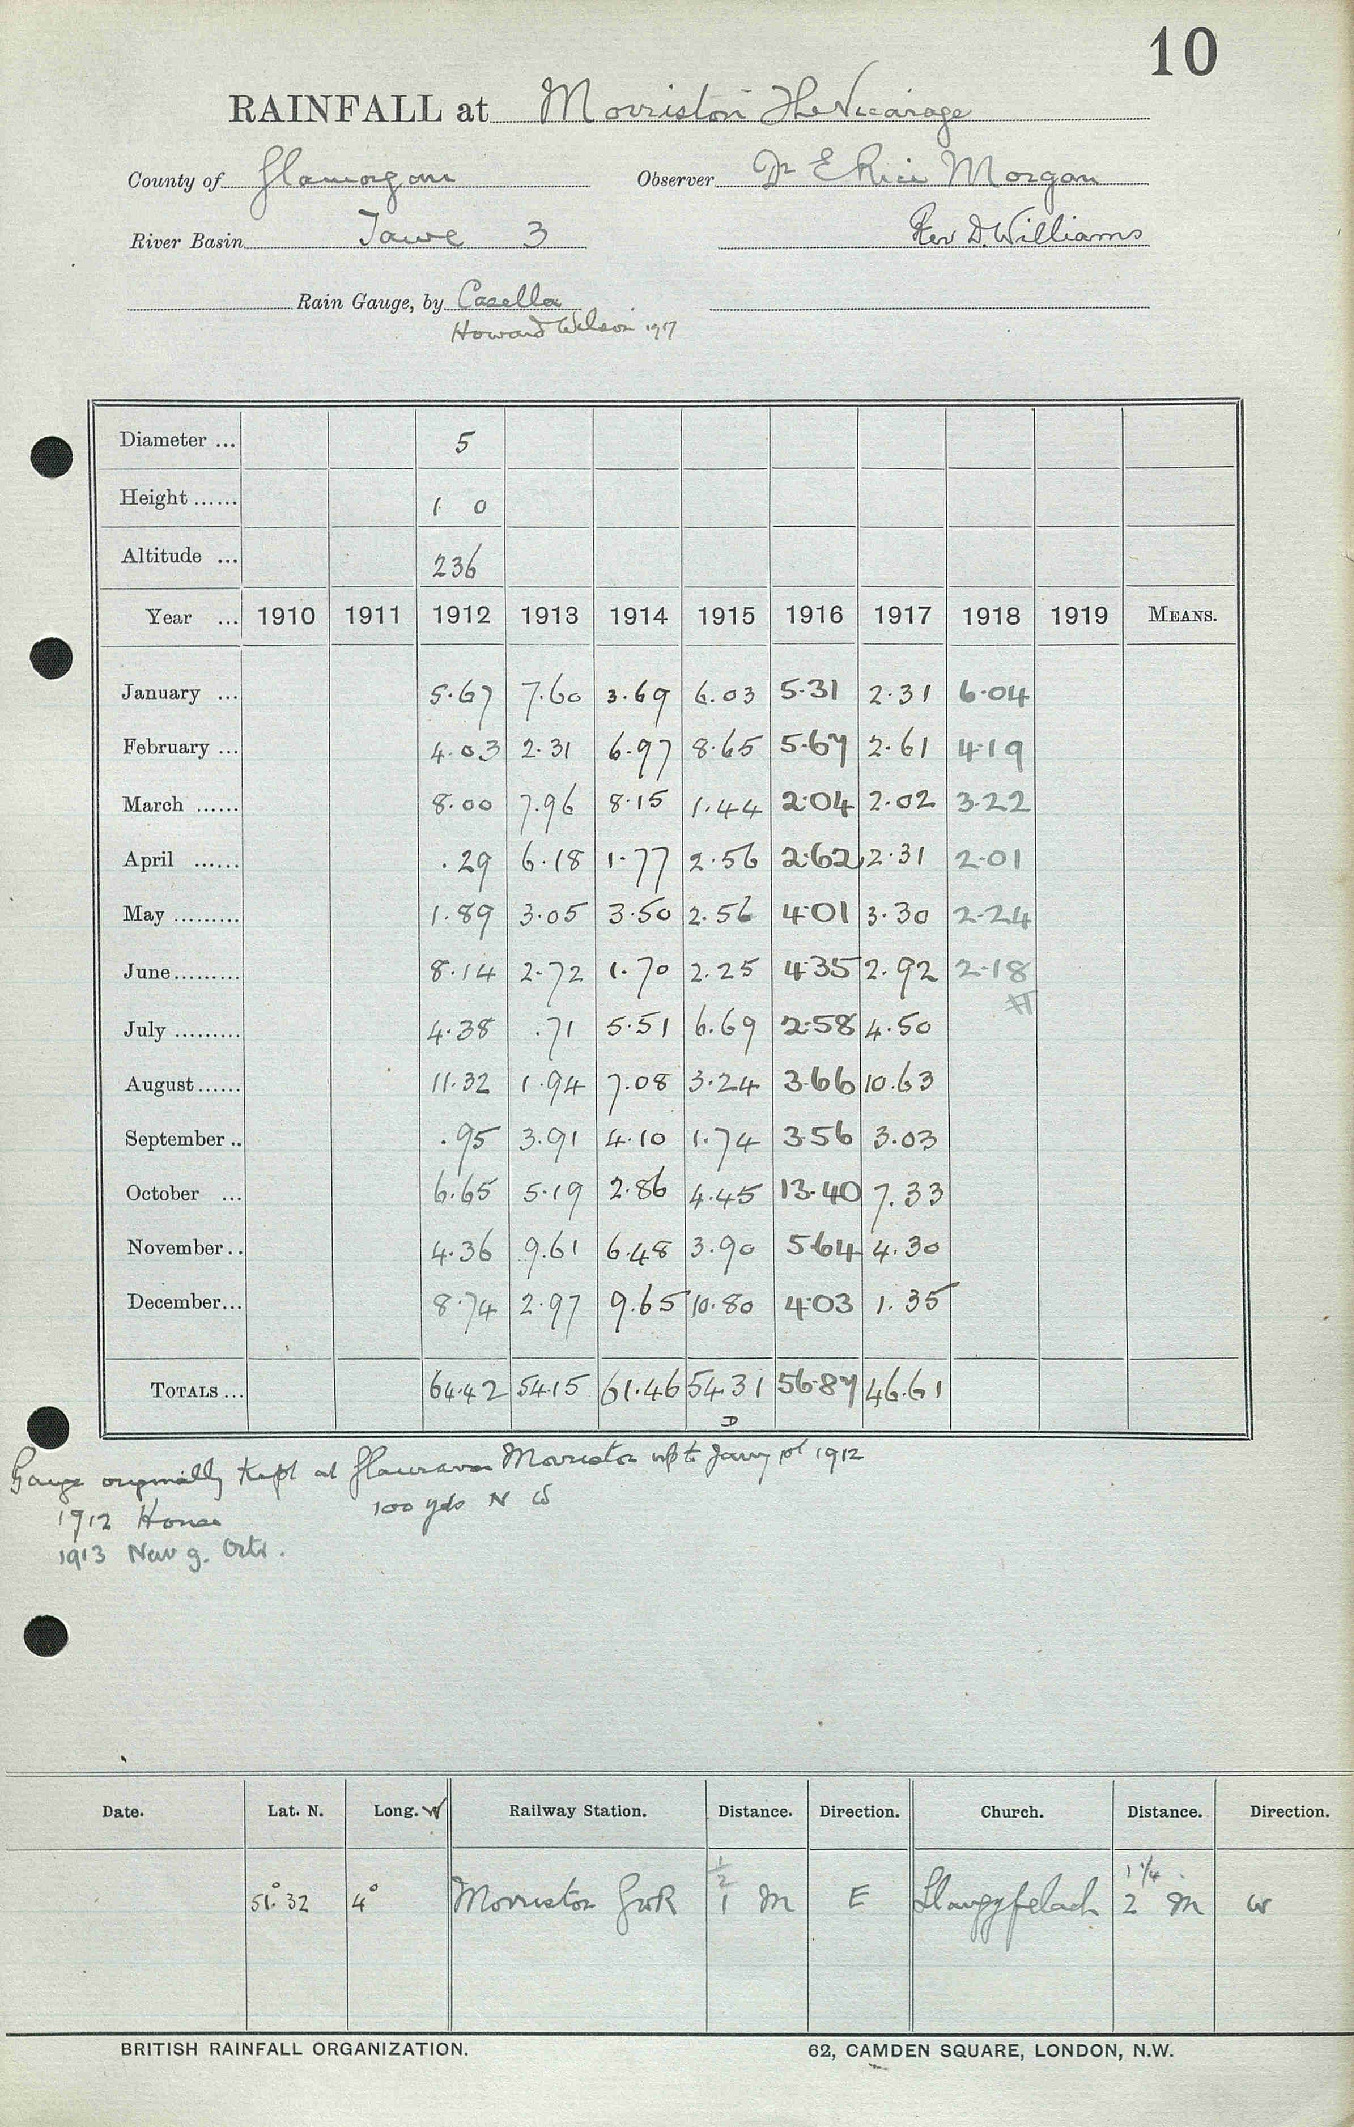 10
RAINFALL at Morriston The Vicarage
County of Glamorgan Observer Dr E Rice Morgan
River Basin Tawe 3 Rev D. Williams
Rain Gauge, by Casella
Howard Wilson 1917
Diameter ... 5
Height ...... 1 0
Altitude ... 236
Year ... 1910 1911 1912 1913 1914 1915 1916 1917 1918 1919 MEANS.
January ... 5.67 7.60 3.69 6.03 5.31 2.31 6.04
February ... 4.03 2.31 6.97 8.65 5.67 2.61 4.19
March ...... 8.00 7.96 8.15 1.44 2.04 2.02 3.22
April ...... .29 6.18 1.77 2.56 2.62 2.31 2.01
May ......... 1.89 3.05 3.50 2.56 4.01 3.30 2.24
June ......... 8.14 2.72 1.70 2.25 4.35 2.92 2.18
July ......... 4.38 .71 5.51 6.69 2.58 4.50
August ...... 11.32 1.94 7.08 3.24 3.66 10.63
September .. .95 3.91 4.10 1.74 3.56 3.03
October ... 6.65 5.19 2.86 4.45 13.40 7.33
November .. 4.36 9.61 6.48 3.90 5.64 4.30
December ... 8.74 2.97 9.65 10.80 4.03 1.35
TOTALS ... 64.42 54.15 61.46 54.31 56.87 46.61
D
Gauge originally kept at Morriston up to Jany 1st 1912
1912 House 100 yds N W
1913 New g. Octr.
Date. Lat. N. Long. W Railway Station. Distance. Direction. Church. Distance. Direction.
1/2 1 1/4
51° 32 4° Morriston GWR 1 M E Llangyfelach 2 M W
BRITISH RAINFALL ORGANIZATION. 62, CAMDEN SQUARE, LONDON, N.W.